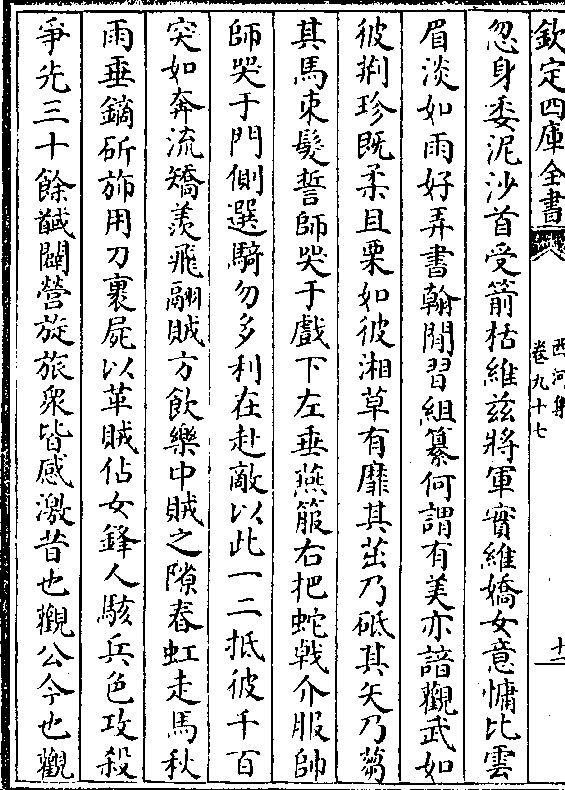 欽定四庫全書
西河集
卷九十七
十二
忽身委泥沙首受箭枯維兹將軍實維嬌女意慵比雲
眉淡如雨好弄書翰閒習組纂何謂有美亦諳觀武如
彼荆珍既柔且栗如彼湘草有靡其茁乃砥其矢乃蒭
其馬束髮誓師哭于戲下左垂燕箙右把蛇戟介服帥
師哭于門側選騎勿多利在赴敵以此一二抵彼千百
突如奔流矯羨飛翮賊方飲樂中賊之隙春虹走馬秋
雨垂鏑斫斾用刀裹屍以革賊佔女鋒人駭兵色攻殺
爭先三十餘馘闢營旋旅衆皆感激昔也觀公今也觀